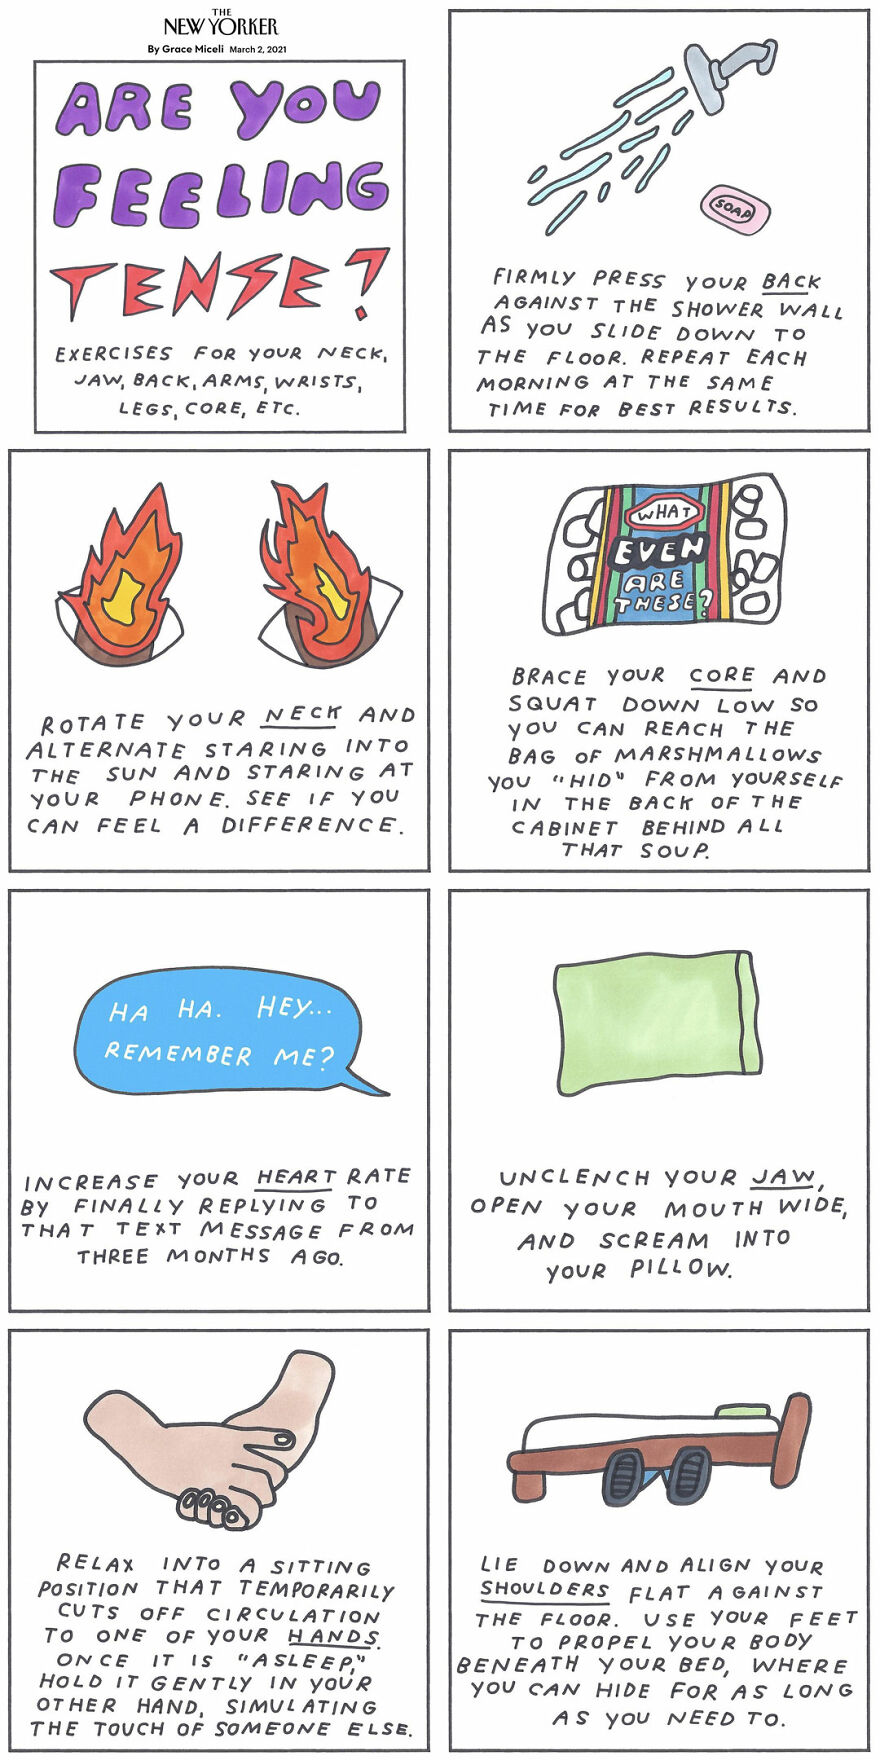 THE
NEW YORKER
By Grace Miceli March 2, 2021
ARE YOU
FEELING
TENSE?
EXERCISES FOR YOUR NECK,
JAW, BACK, ARMS, WRISTS,
LEGS, CORE, ETC.
SOAP
FIRMLY PRESS YOUR BACK
AGAINST THE SHOWER WALL
AS YOU SLIDE DOWN TO
THE FLOOR. REPEAT EACH
MORNING AT THE SAME
TIME FOR BEST RESULTS.
ROTATE YOUR NECK AND
ALTERNATE STARING INTO
THE SUN AND STARING AT
YOUR PHONE. SEE IF YOU
CAN FEEL A DIFFERENCE.
WHAT
EVEN
ARE
THESE?
BRACE YOUR CORE AND
SQUAT DOWN LOW SO
YOU CAN REACH THE
BAG OF MARSHMALLOWS
YOU "HID" FROM YOURSELF
IN THE BACK OF THE
CABINET BEHIND ALL
THAT SOUP.
HA HA. HEY...
REMEMBER ME?
INCREASE YOUR HEART RATE
BY FINALLY REPLYING TO
THAT TEXT MESSAGE FROM
THREE MONTHS AGO.
UNCLENCH YOUR JAW,
OPEN YOUR MOUTH WIDE,
AND SCREAM INTO
YOUR PILLOW.
RELAX INTO A SITTING
POSITION THAT TEMPORARILY
CUTS OFF CIRCULATION
TO ONE OF YOUR HANDS.
ONCE IT IS "ASLEEP,"
HOLD IT GENTLY IN YOUR
OTHER HAND, SIMULATING
THE TOUCH OF SOMEONE ELSE.
LIE DOWN AND ALIGN YOUR
SHOULDERS FLAT AGAINST
THE FLOOR. USE YOUR FEET
TO PROPEL YOUR BODY
BENEATH YOUR BED, WHERE
YOU CAN HIDE FOR AS LONG
AS YOU NEED TO.